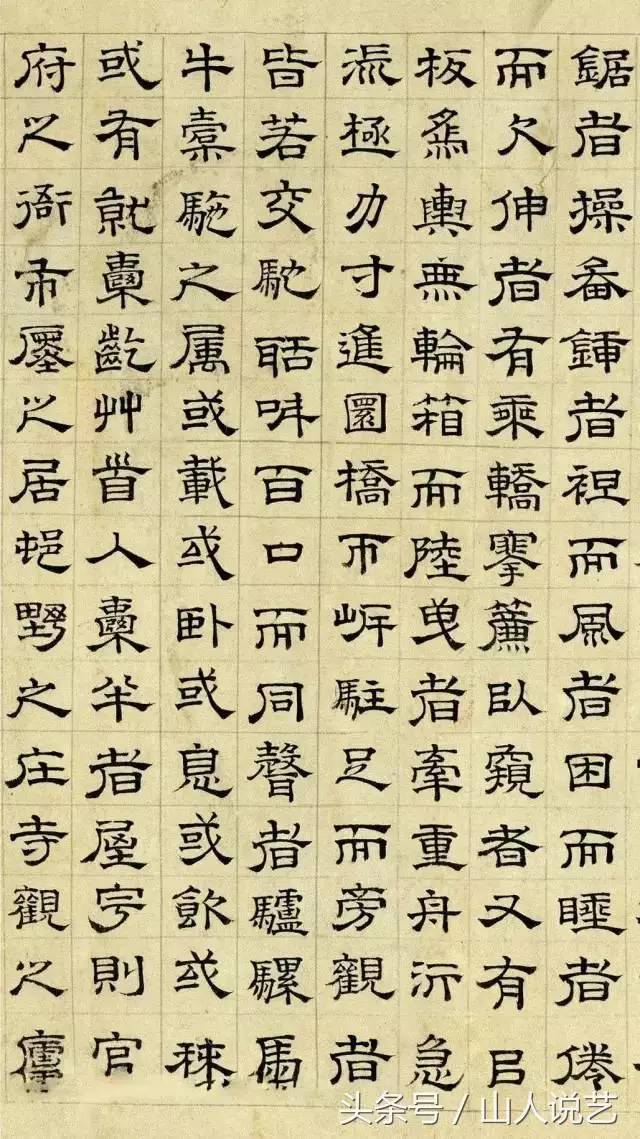 鋸者操畚鍤者袒而風者困而睡者倦
而欠伸者有乘轎搴簾臥窺者又有㠯
板為輿無輪箱而陸曳者牽重舟泝急
流極力寸進圜橋帀岸駐足而旁觀者
皆若交馳聒叫百口而同聲者驢騾馬
牛橐駞之属或載或卧或息或飲或秣
或有就囊齕艸首入囊半者屋宇則官
府之衙市廛之居邨野之庄寺觀之
头条号 / 山人说艺